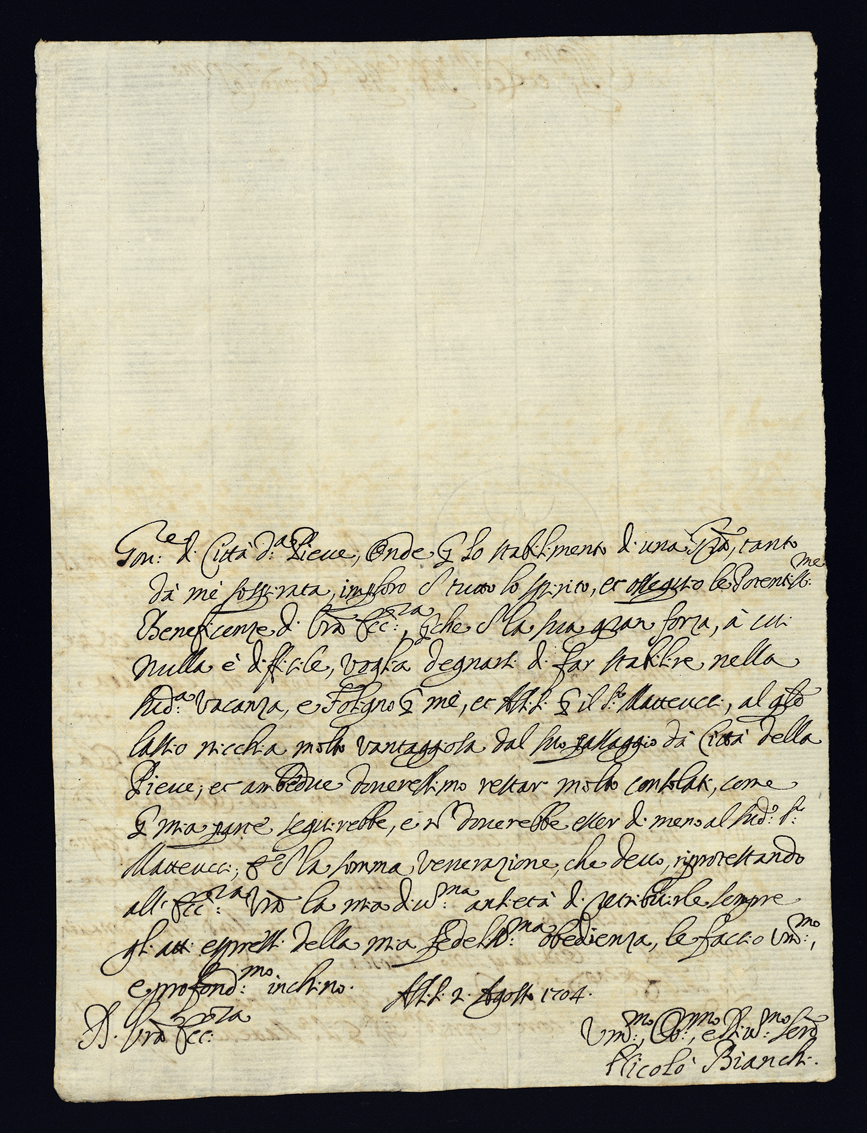 Gov:re di Città d:a Pieve; Onde p lo stabilimento di una Grã, tanto
dà mè sospirata, imploro c tutto lo spirito, et ossequio le Potentiss:me
Beneficenze di Vrã Ecc:za, pche c la sua gran forza, à cui
nulla è difficile, voglia degnarsi di far stabilire nella
sud:a vacanza, e Foligno p mè, et p il S:r Matteucci, al qle
lascio nicchia molto vantaggiosa dal suo passaggio dà Città della
Pieve; et ambedue doveressimo restar molto consolati, come
p mia parte seguirebbe, e nõ doverebbe esser di meno al sud:o S:r
Matteucci; E c la somma venerazione, che devo, riprotestando
all' Ecc:za Vrã la mia div:ma antietà di retribuirle sempre
gli atti espressi della mia fedeliss:ma obedienza, le faccio Um:mo,
e profond:mo inchino. 2 Agosto 1704.
D. Vrã Ecc:za
Um:mo, Obb:mo, e Div:mo Serõ
Nicolò Bianchi.